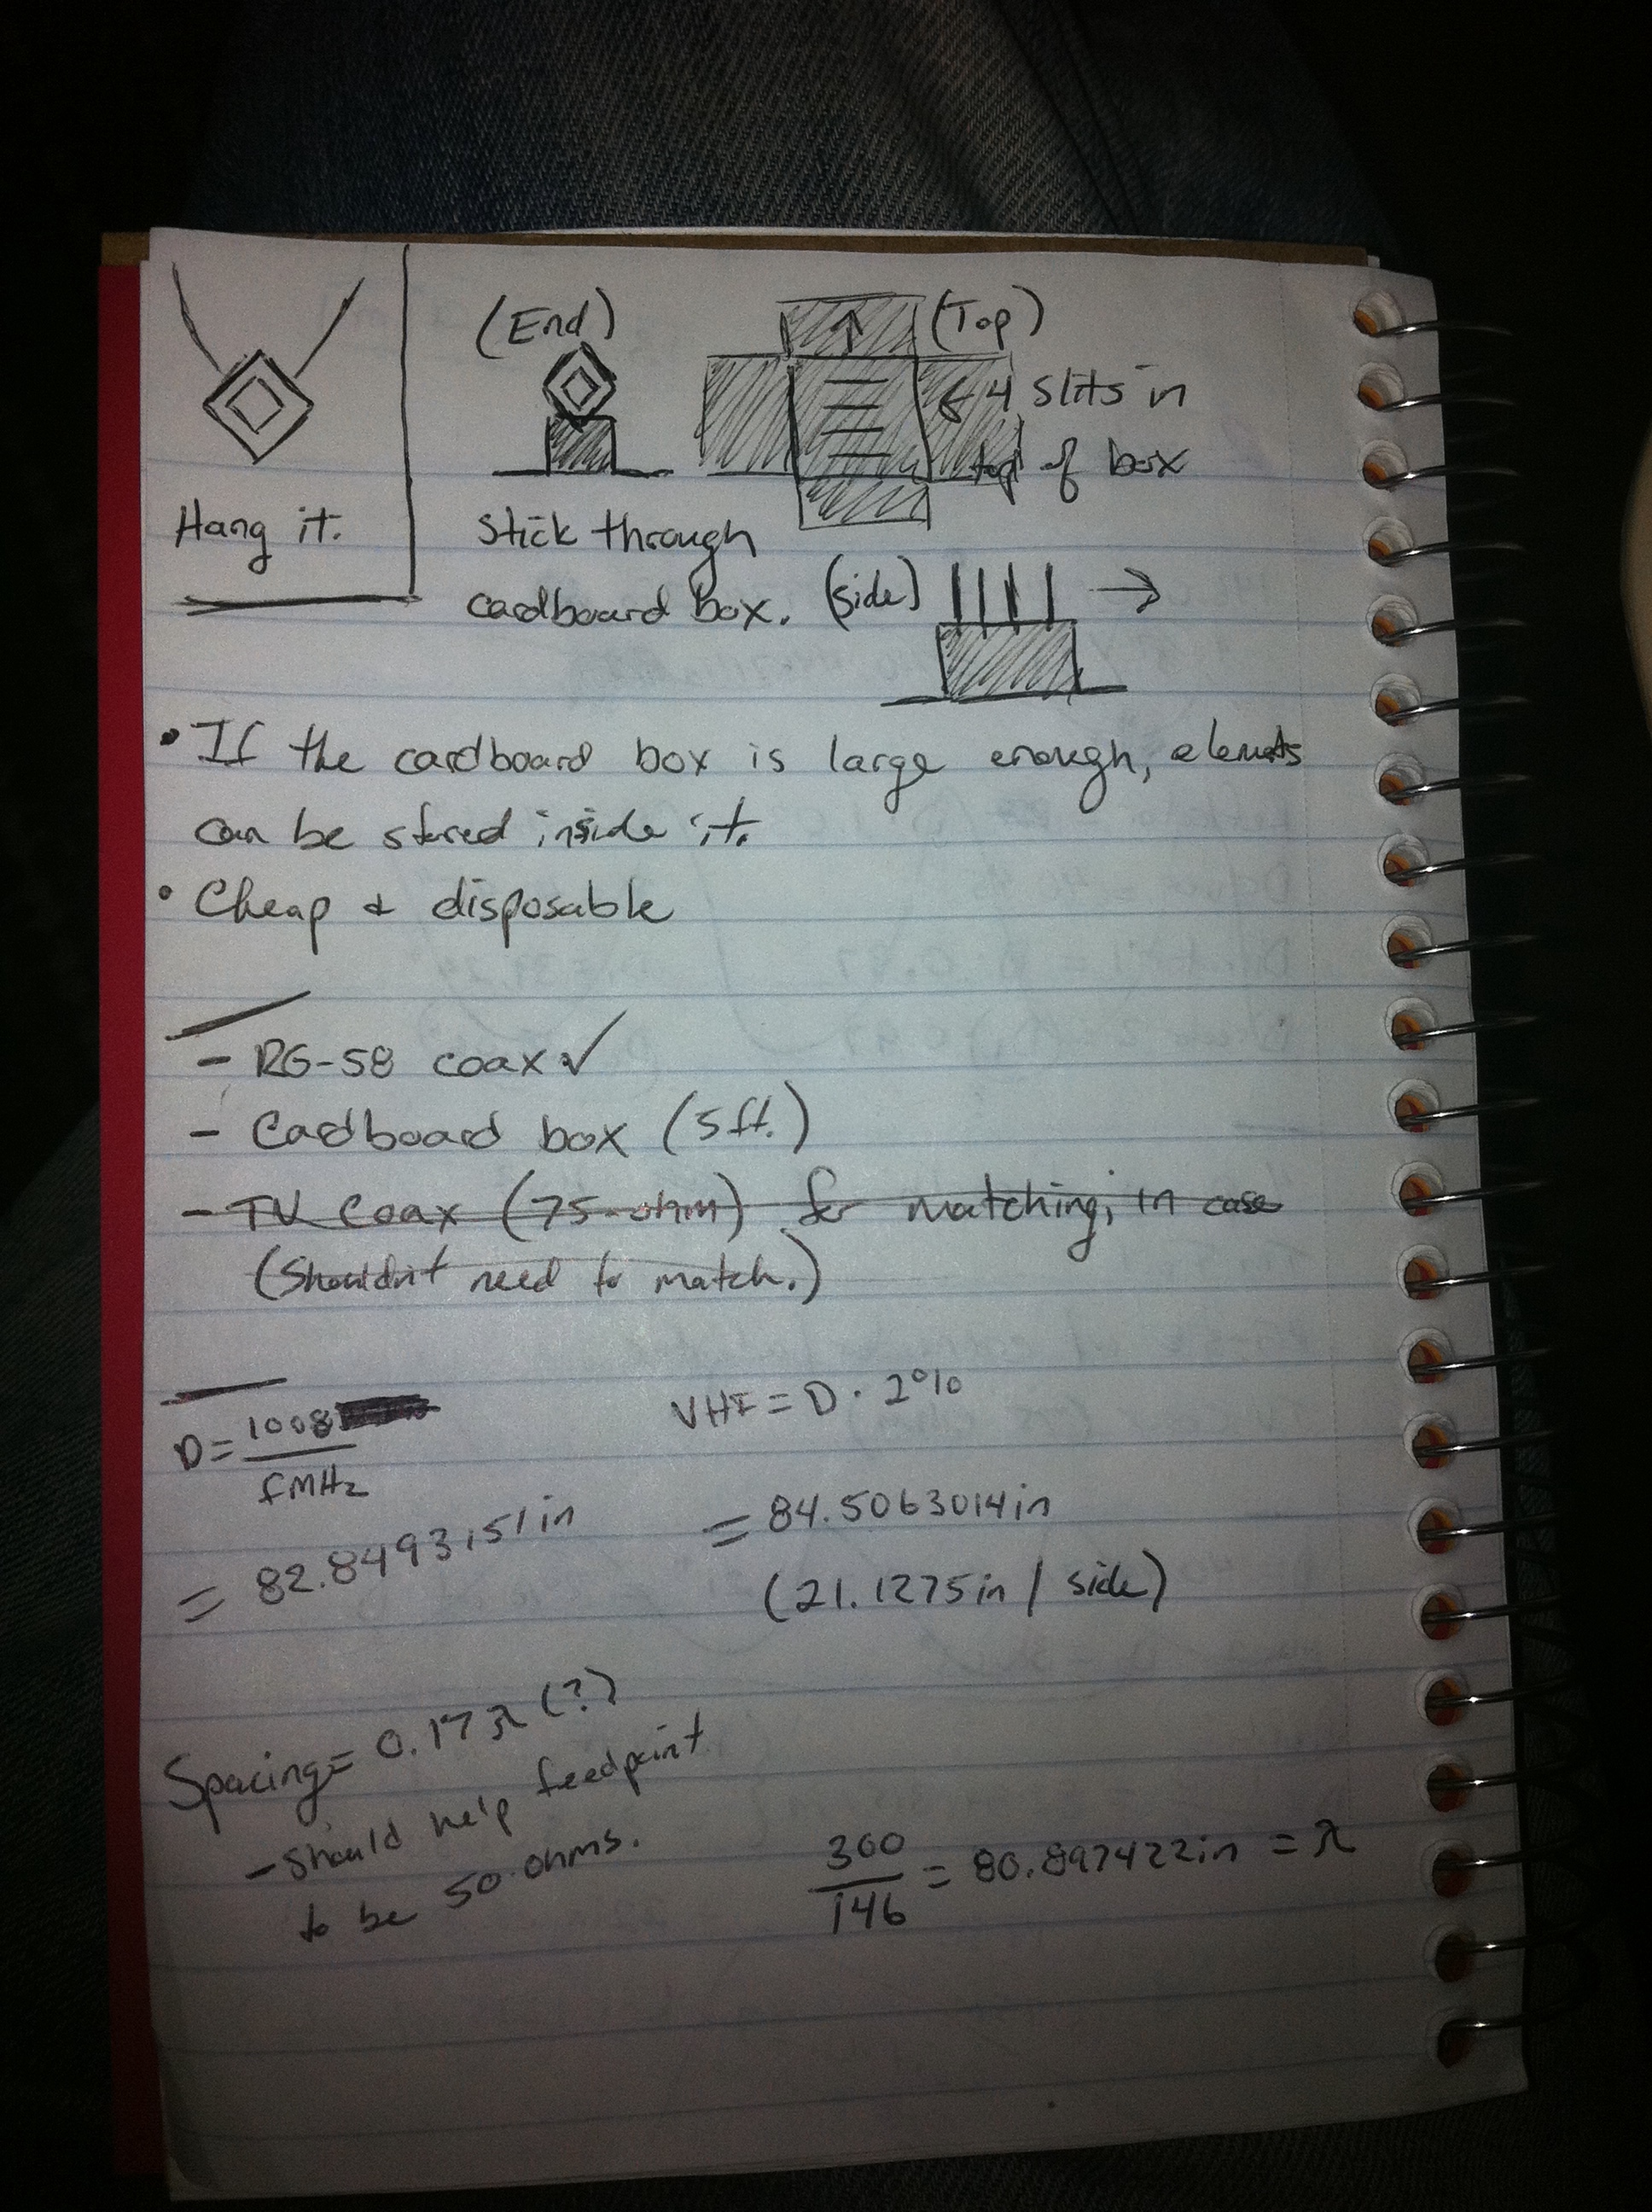 (End)
(Top)
← 4 slits in
top of box
Hang it.
Stick through
cardboard box.
(side)
• If the cardboard box is large enough, elements
can be stored inside it.
• Cheap & disposable
- RG-58 coax ✓
- Cardboard box (5ft.)
- TV Coax (75-ohm) for matching, in case
(Shouldn't need to match.)
D = 1008
fMHz
= 82.8493151 in
VHF = D · 2%
= 84.5063014 in
(21.1275 in / side)
Spacing = 0.17 λ (?)
- Should help feedpoint
to be 50 ohms.
300
146
= 80.897422 in = λ